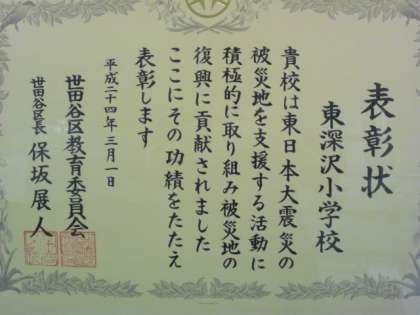 表彰状
東深沢小学校
貴校は東日本大震災の
被災地を支援する活動に
積極的に取り組み被災地の
復興に貢献されました
ここにその功績をたたえ
表彰します
平成二十四年三月一日
世田谷区教育委員会
世田谷区長 保坂展人